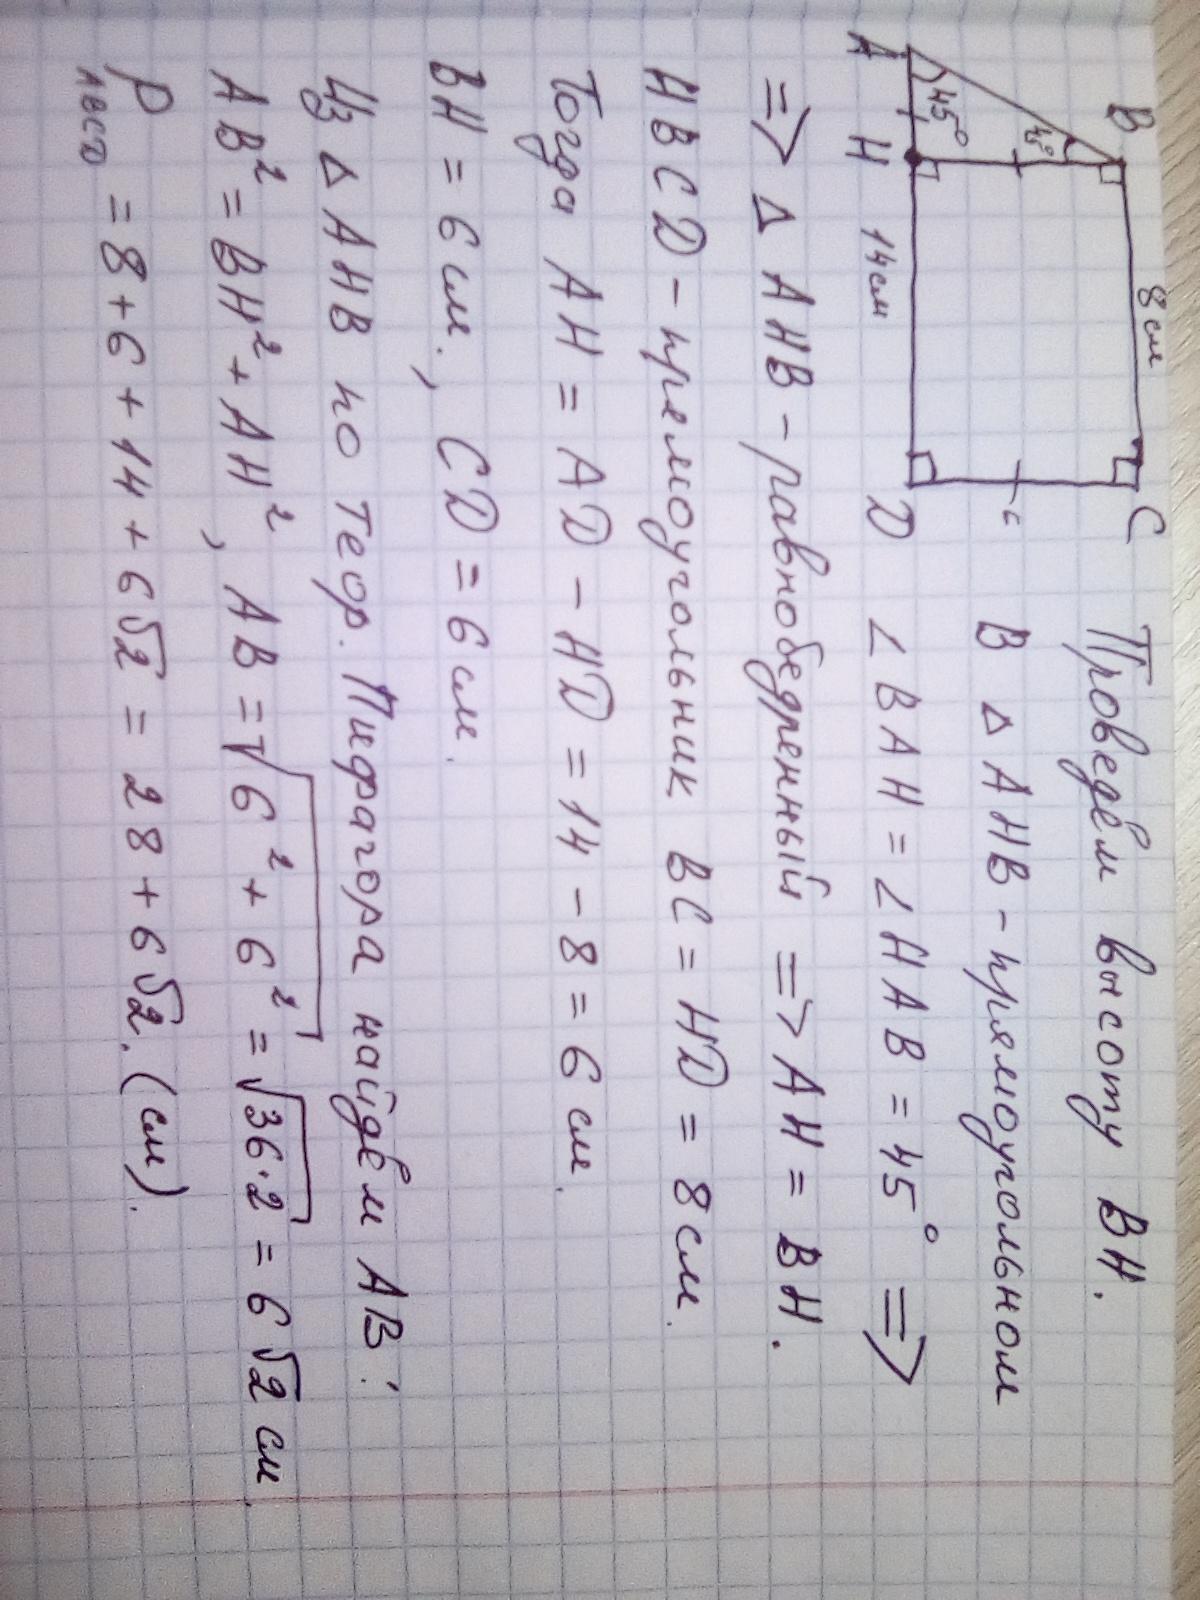 B 8 см C
45°
45°
A H 14 см D
Проведём высоту BH.
В △ AHB - прямоугольном
∠ BAH = ∠ HAB = 45° =>
=> △ AHB - равнобедренный => AH = BH.
HBCD - прямоугольник BC = HD = 8 см.
Тогда AH = AD - HD = 14 - 8 = 6 см.
BH = 6 см., CD = 6 см.
Из △ AHB по теор. Пифагора найдём AB:
AB² = BH² + AH², AB = √6² + 6² = √36·2 = 6√2 см.
P ABCD = 8 + 6 + 14 + 6√2 = 28 + 6√2. (см).